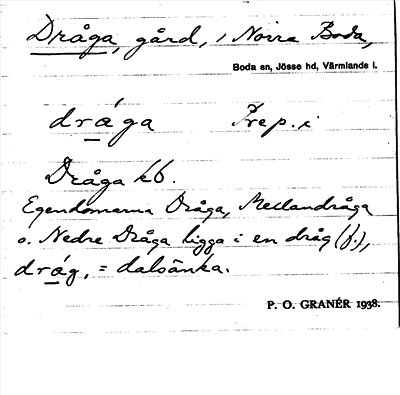 Dråga, gård, i Norra Boda,
Boda sn, Jösse hd, Värmlands l.
dråga Prep. i
Dråga kb.
Egendomarna Dråga, Mellandråga
o. Nedre Dråga ligga i en dråg (f.),
dråg, = dalsänka.
P. O. GRANÉR 1938.